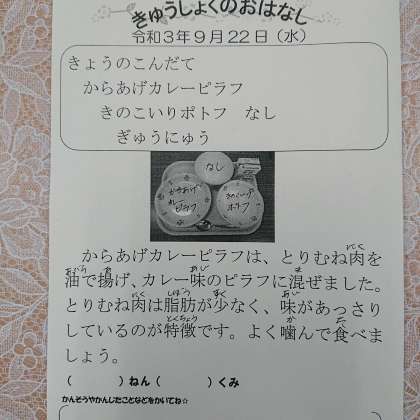 きゅうしょくのおはなし
令和3年9月22日（水）
きょうのこんだて
からあげカレーピラフ
きのこいりポトフ　なし
ぎゅうにゅう
なし
からあげ
カレー
ピラフ
ポトフ
からあげカレーピラフは、とりむね肉を
油で揚げ、カレー味のピラフに混ぜました。
とりむね肉は脂肪が少なく、味があっさり
しているのが特徴です。よく噛んで食べま
しょう。
（　　　）ねん（　　　）くみ
かんそうやかんじたことなどをかいてね☆